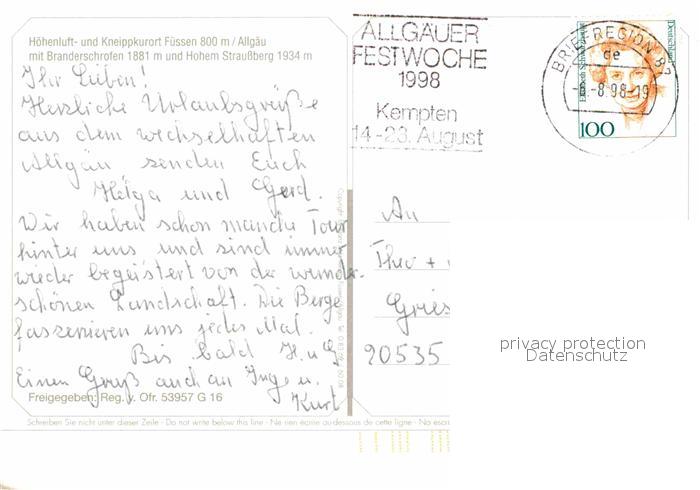 Höhenluft- und Kneippkurort Füssen 800 m / Allgäu
mit Branderschrofen 1881 m und Hohem Straußberg 1934 m
Ihr Lieben!
Herzliche Urlaubsgrüße
aus dem wechselhaften
Allgäu senden Euch
Helga und Gerd.
Wir haben schon manche Tour
hinter uns und sind immer
wieder begeistert von der wunder-
schönen Landschaft. Die Berge
faszenieren uns jedes Mal.
Bis bald H. u G
Einen Gruß auch an Inge u.
Kurt
Freigegeben: Reg. v. Ofr. 53957 G 16
Schreiben Sie nicht unter dieser Zeile - Do not write below this line - Ne rien écrire au-dessous de cette ligne - Na esc
ALLGÄUER
FESTWOCHE
1998
Kempten
14.-23. August
BRIEFREGION 87
de
-8.98-19
Deutschland
100
An
Theo +
Gries
20535
privacy protection
Datenschutz